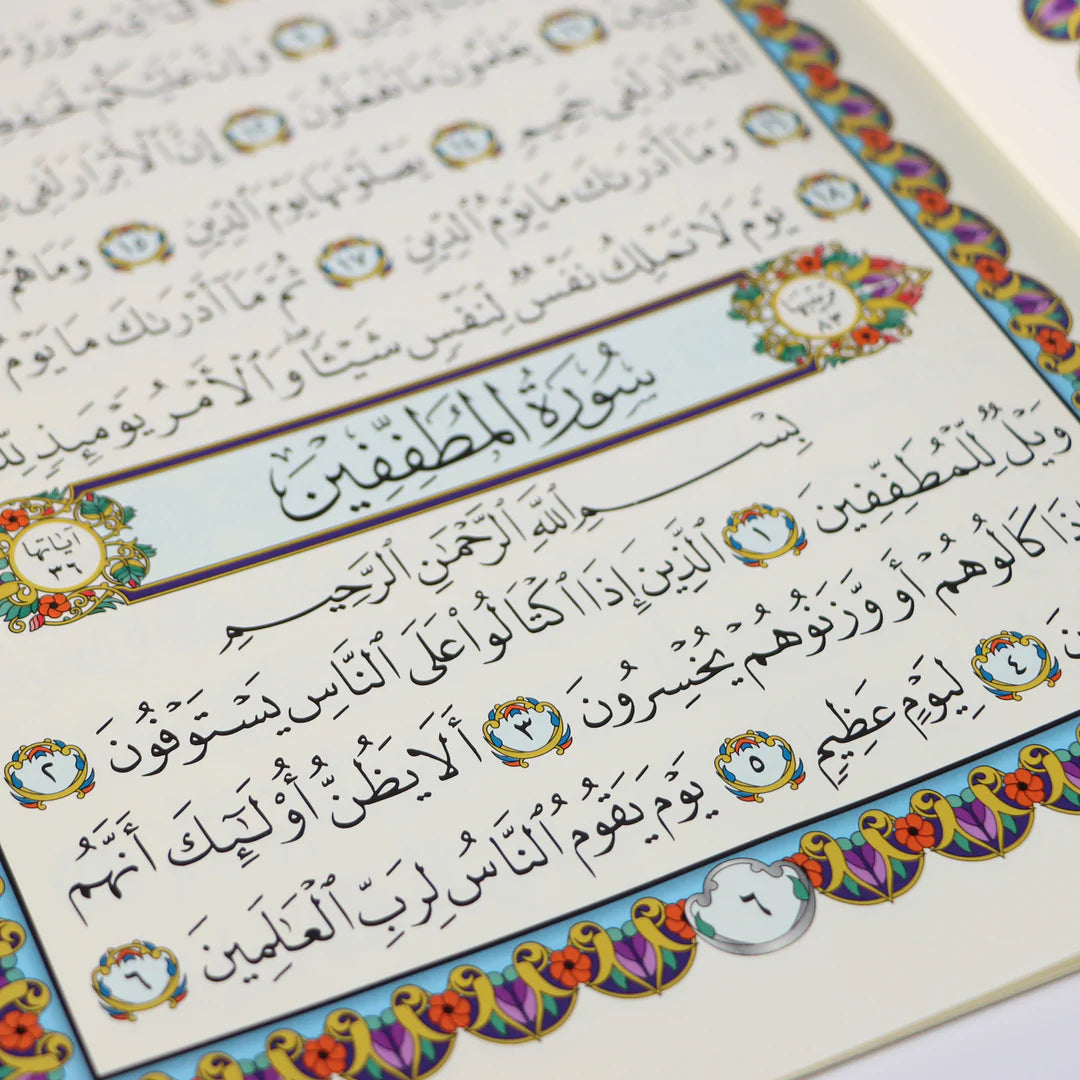 الدِّينِ ٩ وَإِنَّ عَلَيْكُمْ
١١ يَعْلَمُونَ مَا تَفْعَلُونَ ١٢ إِنَّ ٱلْأَبْرَارَ لَفِى
ٱلْفُجَّارَ لَفِى جَحِيمٍ ١٤ يَصْلَوْنَهَا يَوْمَ ٱلدِّينِ ١٥ وَمَا هُمْ
١٦ وَمَآ أَدْرَىٰكَ مَا يَوْمُ ٱلدِّينِ ١٧ ثُمَّ مَآ أَدْرَىٰكَ مَا يَوْمُ
١٨ يَوْمَ لَا تَمْلِكُ نَفْسٌ لِّنَفْسٍ شَيْـًٔا ۖ وَٱلْأَمْرُ يَوْمَئِذٍ لِّلَّهِ
ترتيبها ٨٣ سُورَةُ المُطَفِّفِينَ آياتها ٣٦
بِسْمِ ٱللَّهِ ٱلرَّحْمَٰنِ ٱلرَّحِيمِ
وَيْلٌ لِّلْمُطَفِّفِينَ ١ ٱلَّذِينَ إِذَا ٱكْتَالُوا۟ عَلَى ٱلنَّاسِ يَسْتَوْفُونَ ٢
ذَا كَالُوهُمْ أَو وَّزَنُوهُمْ يُخْسِرُونَ ٣ أَلَا يَظُنُّ أُو۟لَٰٓئِكَ أَنَّهُم
نَ ٤ لِيَوْمٍ عَظِيمٍ ٥ يَوْمَ يَقُومُ ٱلنَّاسُ لِرَبِّ ٱلْعَٰلَمِينَ ٦
٦